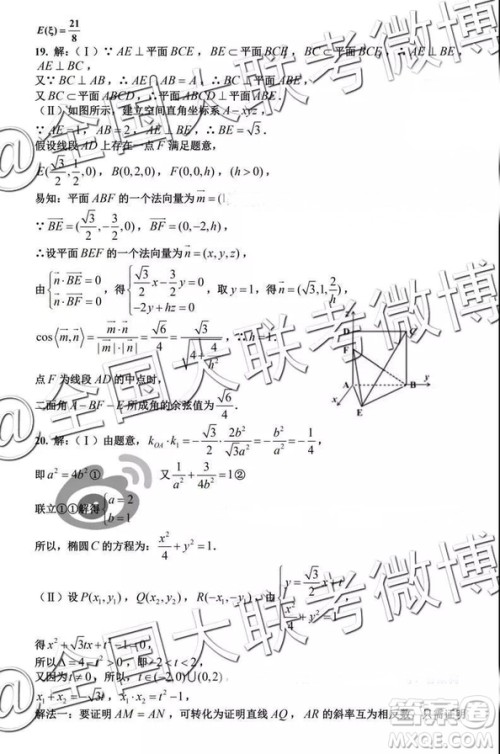 E(ξ)=21/8
19. 解:(Ⅰ)∵ AE⊥平面BCE,BE⊂平面BCE,BC⊂平面BCE,∴ AE⊥BE,
AE⊥BC,
又∵ BC⊥AB,∴ AE∩AB=A,∴ BC⊥平面ABE,
又BC⊂平面ABCD,∴平面ABCD⊥平面ABE.
(Ⅱ)如图所示,建立空间直角坐标系A-xyz,
∵ AE=1,AB=2,AE⊥BE,∴ BE=√3.
假设线段AD上存在一点F满足题意,
E(√3/2, 1/2, 0),B(0,2,0),F(0,0,h),(h>0),
易知:平面ABF的一个法向量为m=(1
∵ BE=(√3/2, -3/2, 0),BF=(0,-2,h),
∴设平面BEF的一个法向量为n=(x,y,z),
由{n·BE=0 n·BF=0,得{√3/2 x-3/2 y=0 -2y+hz=0,取y=1,得n=(√3,1,2/h)
cos⟨m,n⟩=m·n/|m|·|n|=√6/4=√3/√(4+4/h²),∴h=1.
点F为线段AD的中点时,
二面角A-BF-E所成角的余弦值为√6/4.
z
D C
F
A B y
x E
20. 解:(Ⅰ)由题意,k_OA·k₁=-√3/2·2b²/√3a²=-b²/a²=-1/4,
即a²=4b²① 又1/a²+3/4b²=1②
联立①①解得{a=2 b=1
所以,椭圆C的方程为:x²/4+y²=1.
(Ⅱ)设P(x₁,y₁),Q(x₂,y₂),R(-x₁,-y₁),由{y=√3/2 x+t x²/4+y²=1
得x²+√3tx+t²-1=0,
所以Δ=4-t²>0,即-2<t<2,
又因为t≠0,所以,t∈(-2,0)∪(0,2),
x₁+x₂=-√3t,
解法一:要证明AM=AN,可转化为证明直线AQ,AR的斜率互为相反数,只需证明
@全国大联考微博
@全国大联考微博
@全国大联考微博
答案圈